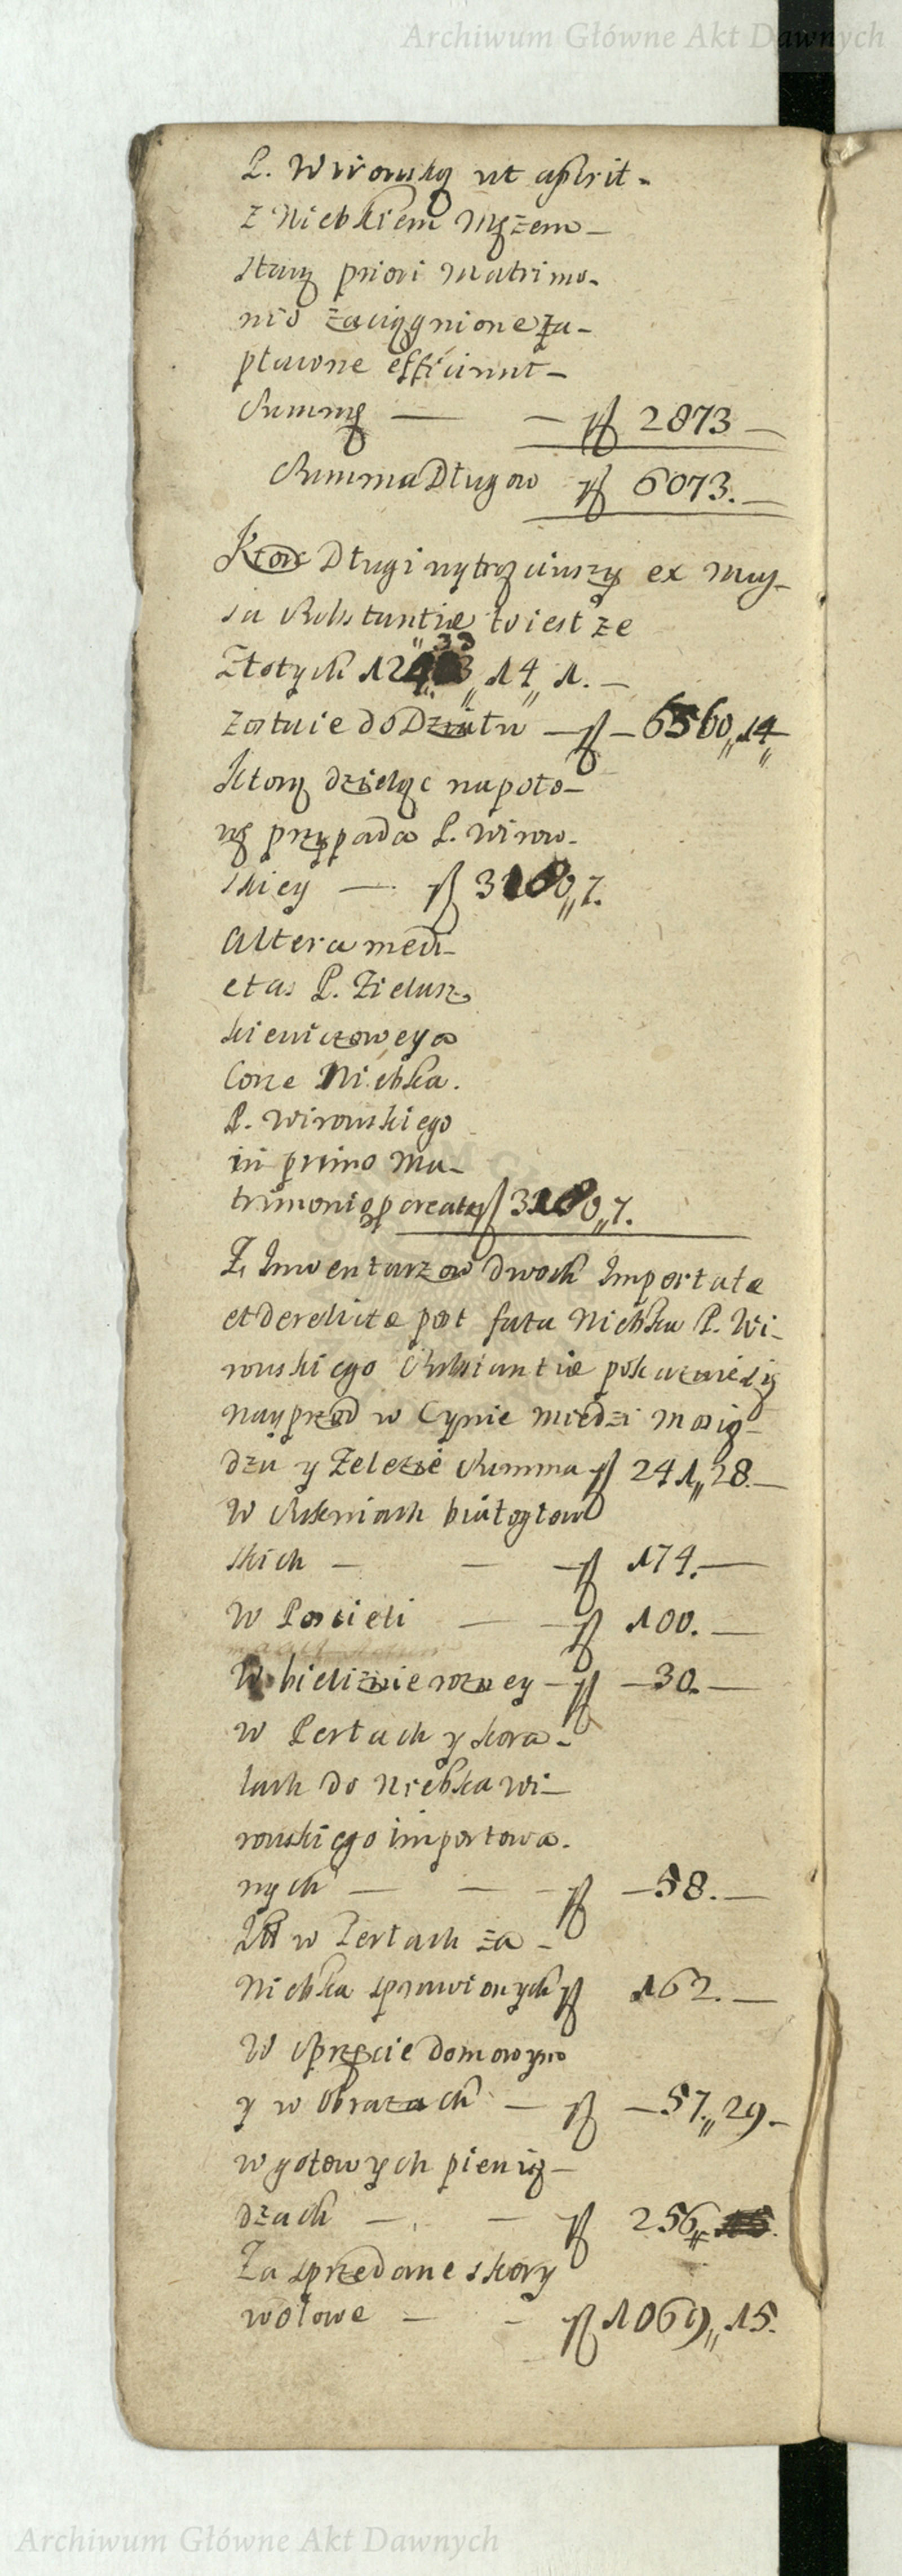 Archiwum Główne Akt Dawnych
P. Wirowską ut asserit
z Niebkiem Mężem
stary priori Matrimo-
nio zaciągnione za-
płacone efficiunt
Summę — — zł 2873 —
Summa Długow zł 6073. —
Ktore Długi wytrąciwszy ex Mas-
sa Substantiæ to iest ze
Złotych 14,, 1. —
zostaie do Działu — zł — 6560,, 14
Ktorą dzieląc na poło-
wę przypada P. Wirow-
skiey — zł 3280,, 7.
Altera medi-
etas P. Zielasz-
kiewiczowey a
Corce Niebka.
P. Wirowskiego
in primo Ma-
trimonio procreatæ zł 3280,, 7.
Z Inwentarzow dwoch Importatæ
et derelictæ post fata Niebka P. Wi-
rowskiego Substantiæ pokazuie się
Nayprzod w Cynie Miedzi Mosią-
dzu y Zelezie Summa zł 241,, 28. —
W Sukniach białogłow
skich — — zł 174. —
W Poscieli — — zł 100. —
W bieliznie rozney — zł — 30. —
w Perłach y kora-
lach do Niebka Wi-
rowskiego importowa-
nych — — zł — 58. —
w Perłach za
Niebka sprawionych zł 162. —
W Sprzęcie domowym
y w Obrazach — zł — 57,, 29. —
w gotowych pienią-
dzach — — zł 256,,
Za sprzedane skory
wołowe — - zł 1069,, 15.
Archiwum Główne Akt Dawnych